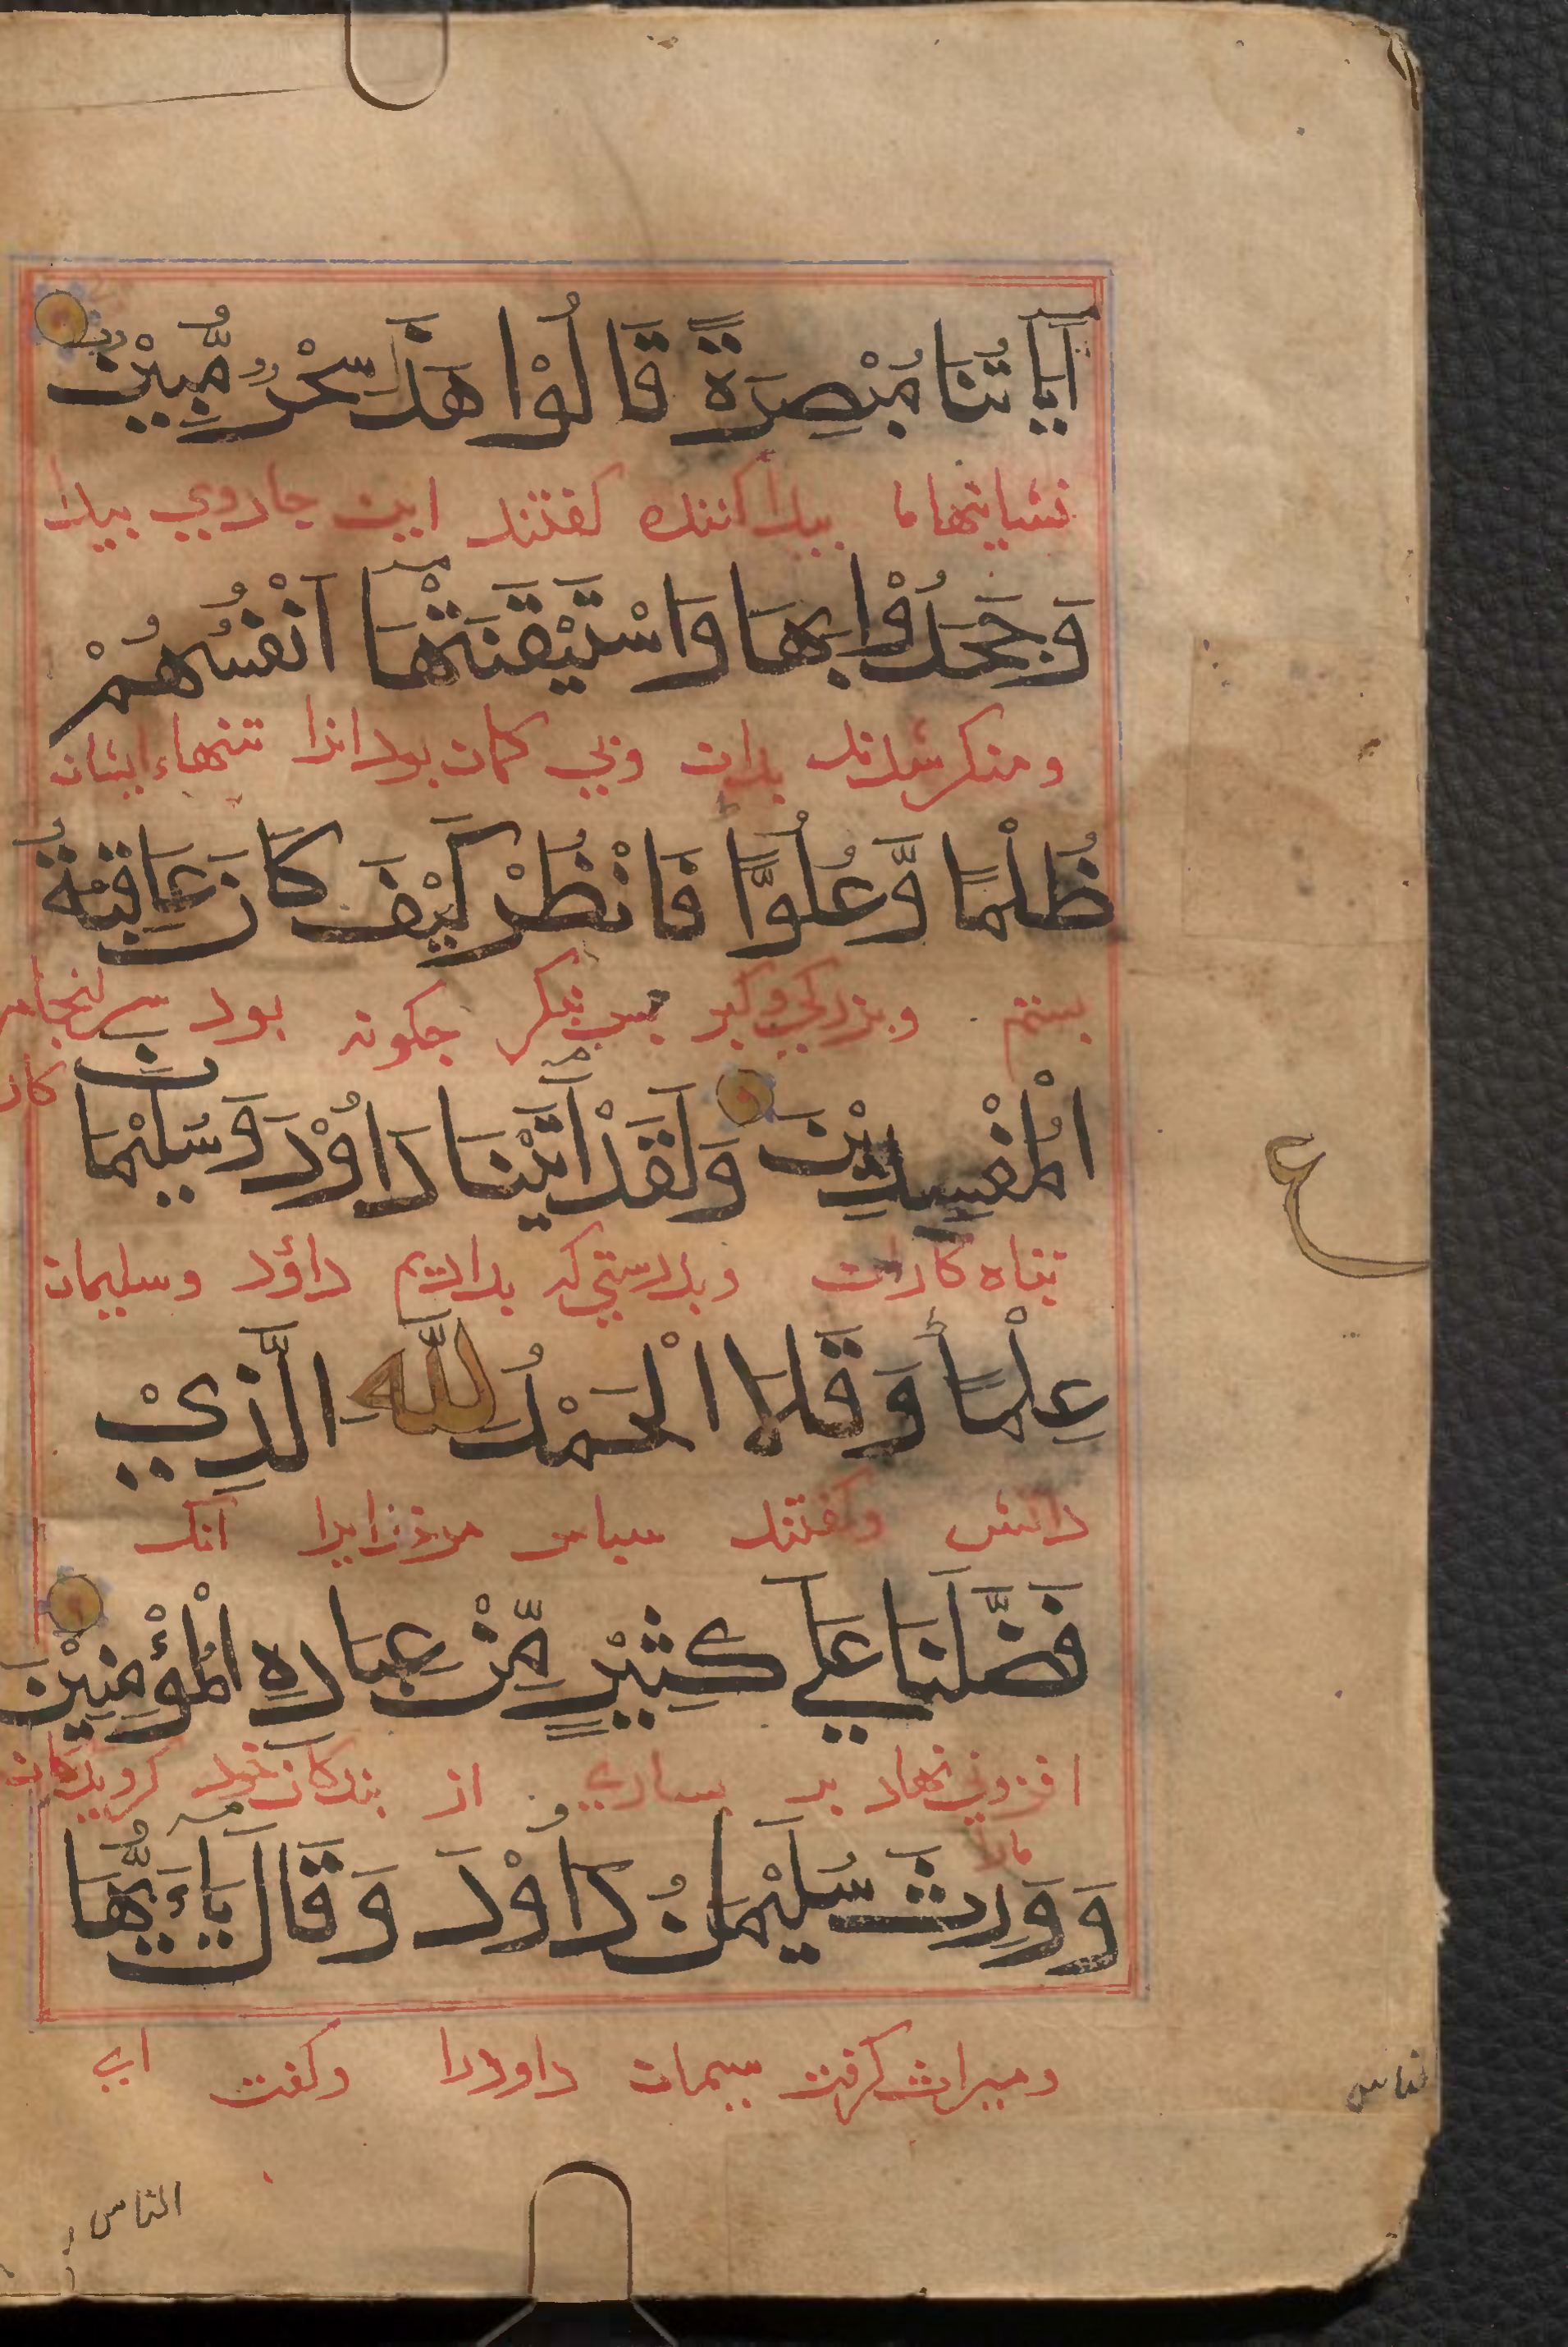 اٰيَاتُنَا مُبْصِرَةً قَالُوْا هَذَا سِحْرٌ مُّبِيْنٌ
نشانیهاما بیدا کننده کفتند این جادوي بیدا
وَجَحَدُوْا بِهَا وَاسْتَيْقَنَتْهَا اَنْفُسُهُمْ
ومنکر شدند بدان وبي کمان بود انرا تنهاء ایشان
ظُلْمًا وَّعُلُوًّا فَانْظُرْ كَيْفَ كَانَ عَاقِبَةُ
بستم وبزرکي وکبر بس بنکر جکونه بود سرانجام
کار
الْمُفْسِدِيْنَ وَلَقَدْ اٰتَيْنَا دَاوُوْدَ وَسُلَيْمَانَ
تباه کاران وبدرستي که بدادیم داؤد وسلیمان
عِلْمًا وَقَالَا الْحَمْدُ لِلّٰهِ الَّذِيْ
دانش وکفتند سباس مرخدایرا آنک
فَضَّلَنَا عَلٰي كَثِيْرٍ مِّنْ عِبَادِهِ الْمُؤْمِنِيْنَ
افزوني نهاد بر بسیاري از بندکان خود کرویدکان
مارا
وَوَرِثَ سُلَيْمَانُ دَاوُوْدَ وَقَالَ يَاءَيُّهَا
ومیراث کرفت سیمان داودرا وکفت اي
ع
الناس